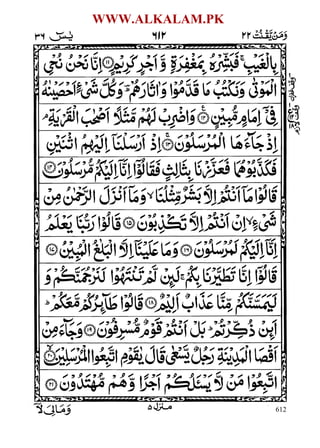 WWW.ALKALAM.PK
وَمَنْ يَّقْنُتْ ۲۲ ۶۱۲ يٰسٓ ۳۶
بِالْغَيْبِ ۚ فَبَشِّرْهُ بِمَغْفِرَةٍ وَّ اَجْرٍ كَرِيْمٍ ۝۱۱ اِنَّا نَحْنُ نُحْيِ
الْمَوْتٰى وَنَكْتُبُ مَا قَدَّمُوْا وَاٰثَارَهُمْ ؕ وَكُلَّ شَيْءٍ اَحْصَيْنٰهُ
فِيْۤ اِمَامٍ مُّبِيْنٍ ۝۱۲ وَاضْرِبْ لَهُمْ مَّثَلًا اَصْحٰبَ الْقَرْيَةِ ۘ
اِذْ جَآءَهَا الْمُرْسَلُوْنَ ۝۱۳ اِذْ اَرْسَلْنَاۤ اِلَيْهِمُ اثْنَيْنِ
فَكَذَّبُوْهُمَا فَعَزَّزْنَا بِثَالِثٍ فَقَالُوْۤا اِنَّاۤ اِلَيْكُمْ مُّرْسَلُوْنَ ۝۱۴
قَالُوْا مَاۤ اَنْتُمْ اِلَّا بَشَرٌ مِّثْلُنَا ۙ وَمَاۤ اَنْزَلَ الرَّحْمٰنُ مِنْ
شَيْءٍ ۙ اِنْ اَنْتُمْ اِلَّا تَكْذِبُوْنَ ۝۱۵ قَالُوْا رَبُّنَا يَعْلَمُ
اِنَّاۤ اِلَيْكُمْ لَمُرْسَلُوْنَ ۝۱۶ وَمَا عَلَيْنَاۤ اِلَّا الْبَلٰغُ الْمُبِيْنُ ۝۱۷
قَالُوْۤا اِنَّا تَطَيَّرْنَا بِكُمْ ۚ لَئِنْ لَّمْ تَنْتَهُوْا لَنَرْجُمَنَّكُمْ وَ
لَيَمَسَّنَّكُمْ مِّنَّا عَذَابٌ اَلِيْمٌ ۝۱۸ قَالُوْا طَآئِرُكُمْ مَّعَكُمْ ؕ
اَئِنْ ذُكِّرْتُمْ ؕ بَلْ اَنْتُمْ قَوْمٌ مُّسْرِفُوْنَ ۝۱۹ وَجَآءَ مِنْ
اَقْصَا الْمَدِيْنَةِ رَجُلٌ يَّسْعٰى قَالَ يٰقَوْمِ اتَّبِعُوا الْمُرْسَلِيْنَ ۝۲۰
اتَّبِعُوْا مَنْ لَّا يَسْـَٔلُكُمْ اَجْرًا وَّهُمْ مُّهْتَدُوْنَ ۝۲۱
منزل ۵
وَمَالِيَ لَاۤ
612